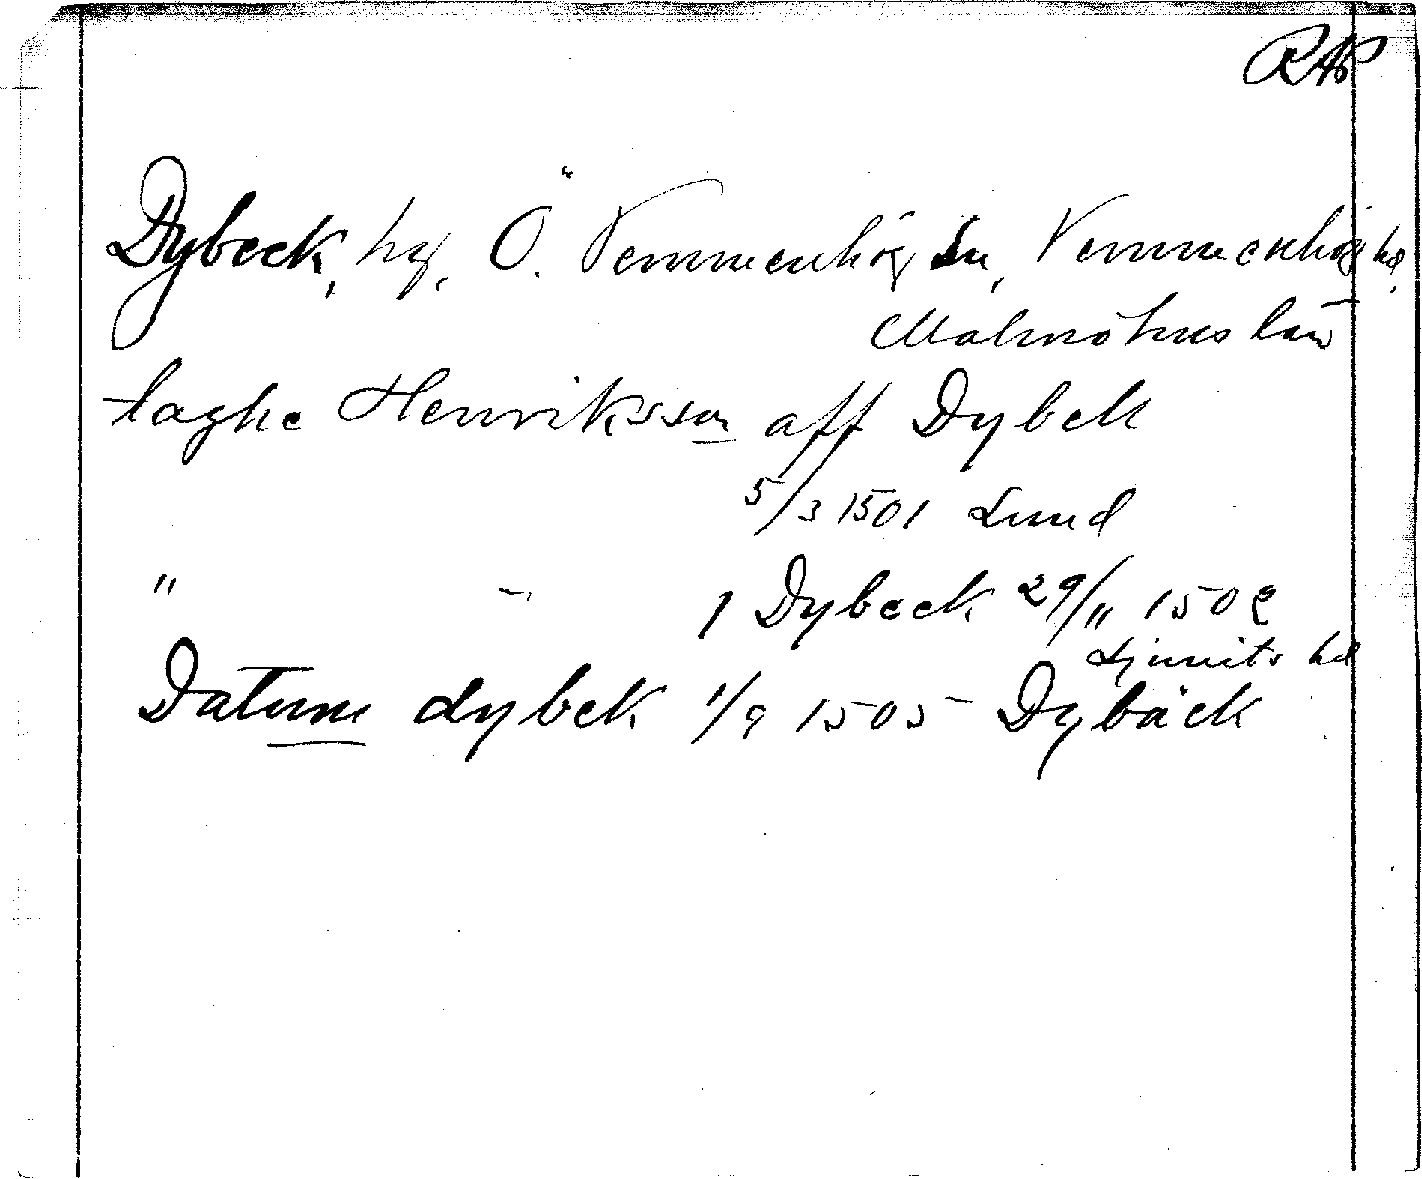 RAP
Dybeck, hg, Ö. Vemmenhög sn, Vemmenhögs hd,
Malmöhus län
taghe Henrikssøn aff Dybek
5/3 1501 Lund
" — " — i Dybeck 29/11 1502
Ljunits hd
Datum dybek 1/9 1505 Dybäck